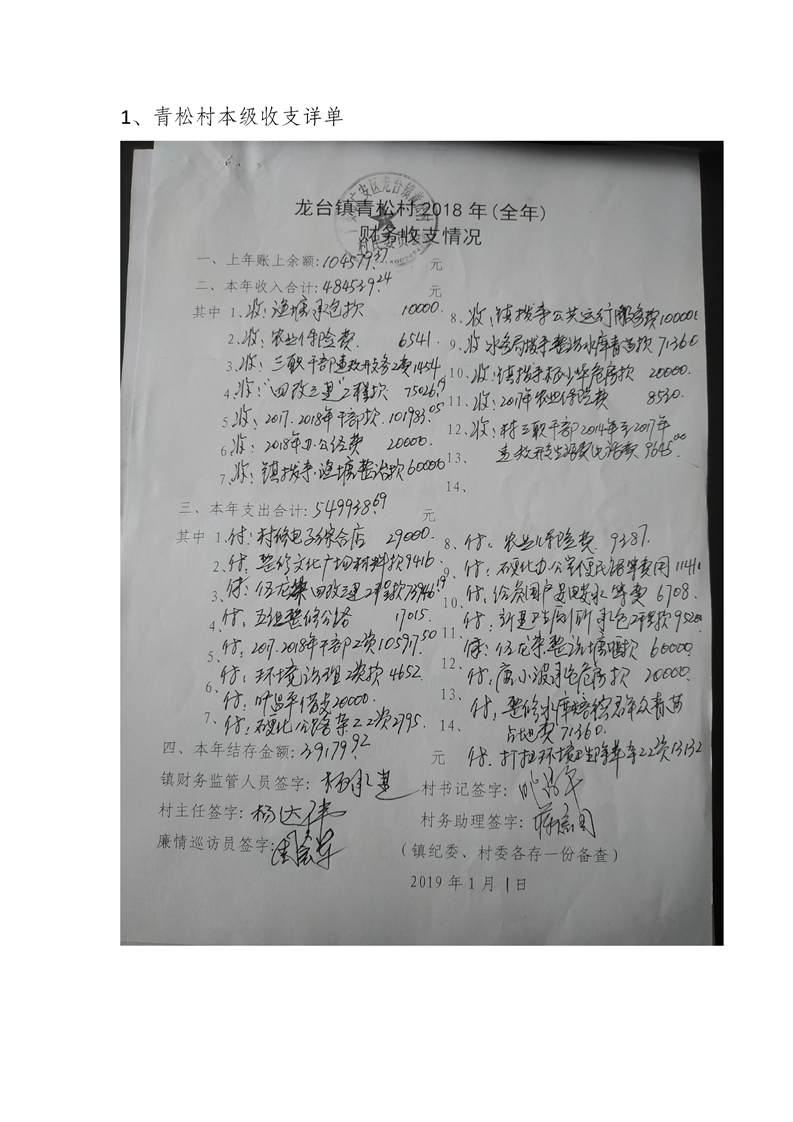 1、青松村本级收支详单
龙台镇青松村2018年(全年)
财务收支情况
一、上年账上余额:104579.37 元
二、本年收入合计:484539.24 元
其中 1、收:渔塘承包款 10000.
2、收:农业保险费 6541.
3、收:三职干部违教开支务工费1454
4、收:"四改三建"工程款 75026.19
5、收:2017.2018年干部款.101983.05
6、收:2018年办公经费 20000.
7、收:镇拨来渔塘整治款60000
8、收:镇拨来公共运行服务费100000
9、收水务局拨来整治水库青苗款71360
10、收:镇拨来 危房款 20000.
11、收:2017年农业保险费 8530.
12、收:村三职干部2014年至2017年
生活费电话费9645.00
13、
14、
三、本年支出合计:549938.69 元
其中 1、付:村修电子综合店 29000.
2、付:整修文化广场材料款9416.
3、付:伍龙 四改三建工程款73946.19
4、付:五组整修公路 17015.
5、付:2017.2018年干部工资105917.50
6、付:环境治理工资款4652.
7、付:叶昌平借支20000.
付:硬化公路杂工工资2795.
8、付:农业保险费 9387.
9、付:硬化办公室便民路等费用11411
10、付:给贫困户 等费 6708.
11、付:新建卫生厕所承包工程款
12、付:伍龙 整治塘堰款 60000.
13、付:唐小波承包危房款 20000.
14、付:整修水库赔偿群众青苗
占地费71360.
付:打扫环境卫生等杂工工资13132
四、本年结存金额:39179.92 元
镇财务监管人员签字:杨
村书记签字:叶昌平
村主任签字:杨达伟
村务助理签字:
廉情巡访员签字:
(镇纪委、村委各存一份备查)
2019年1月1日